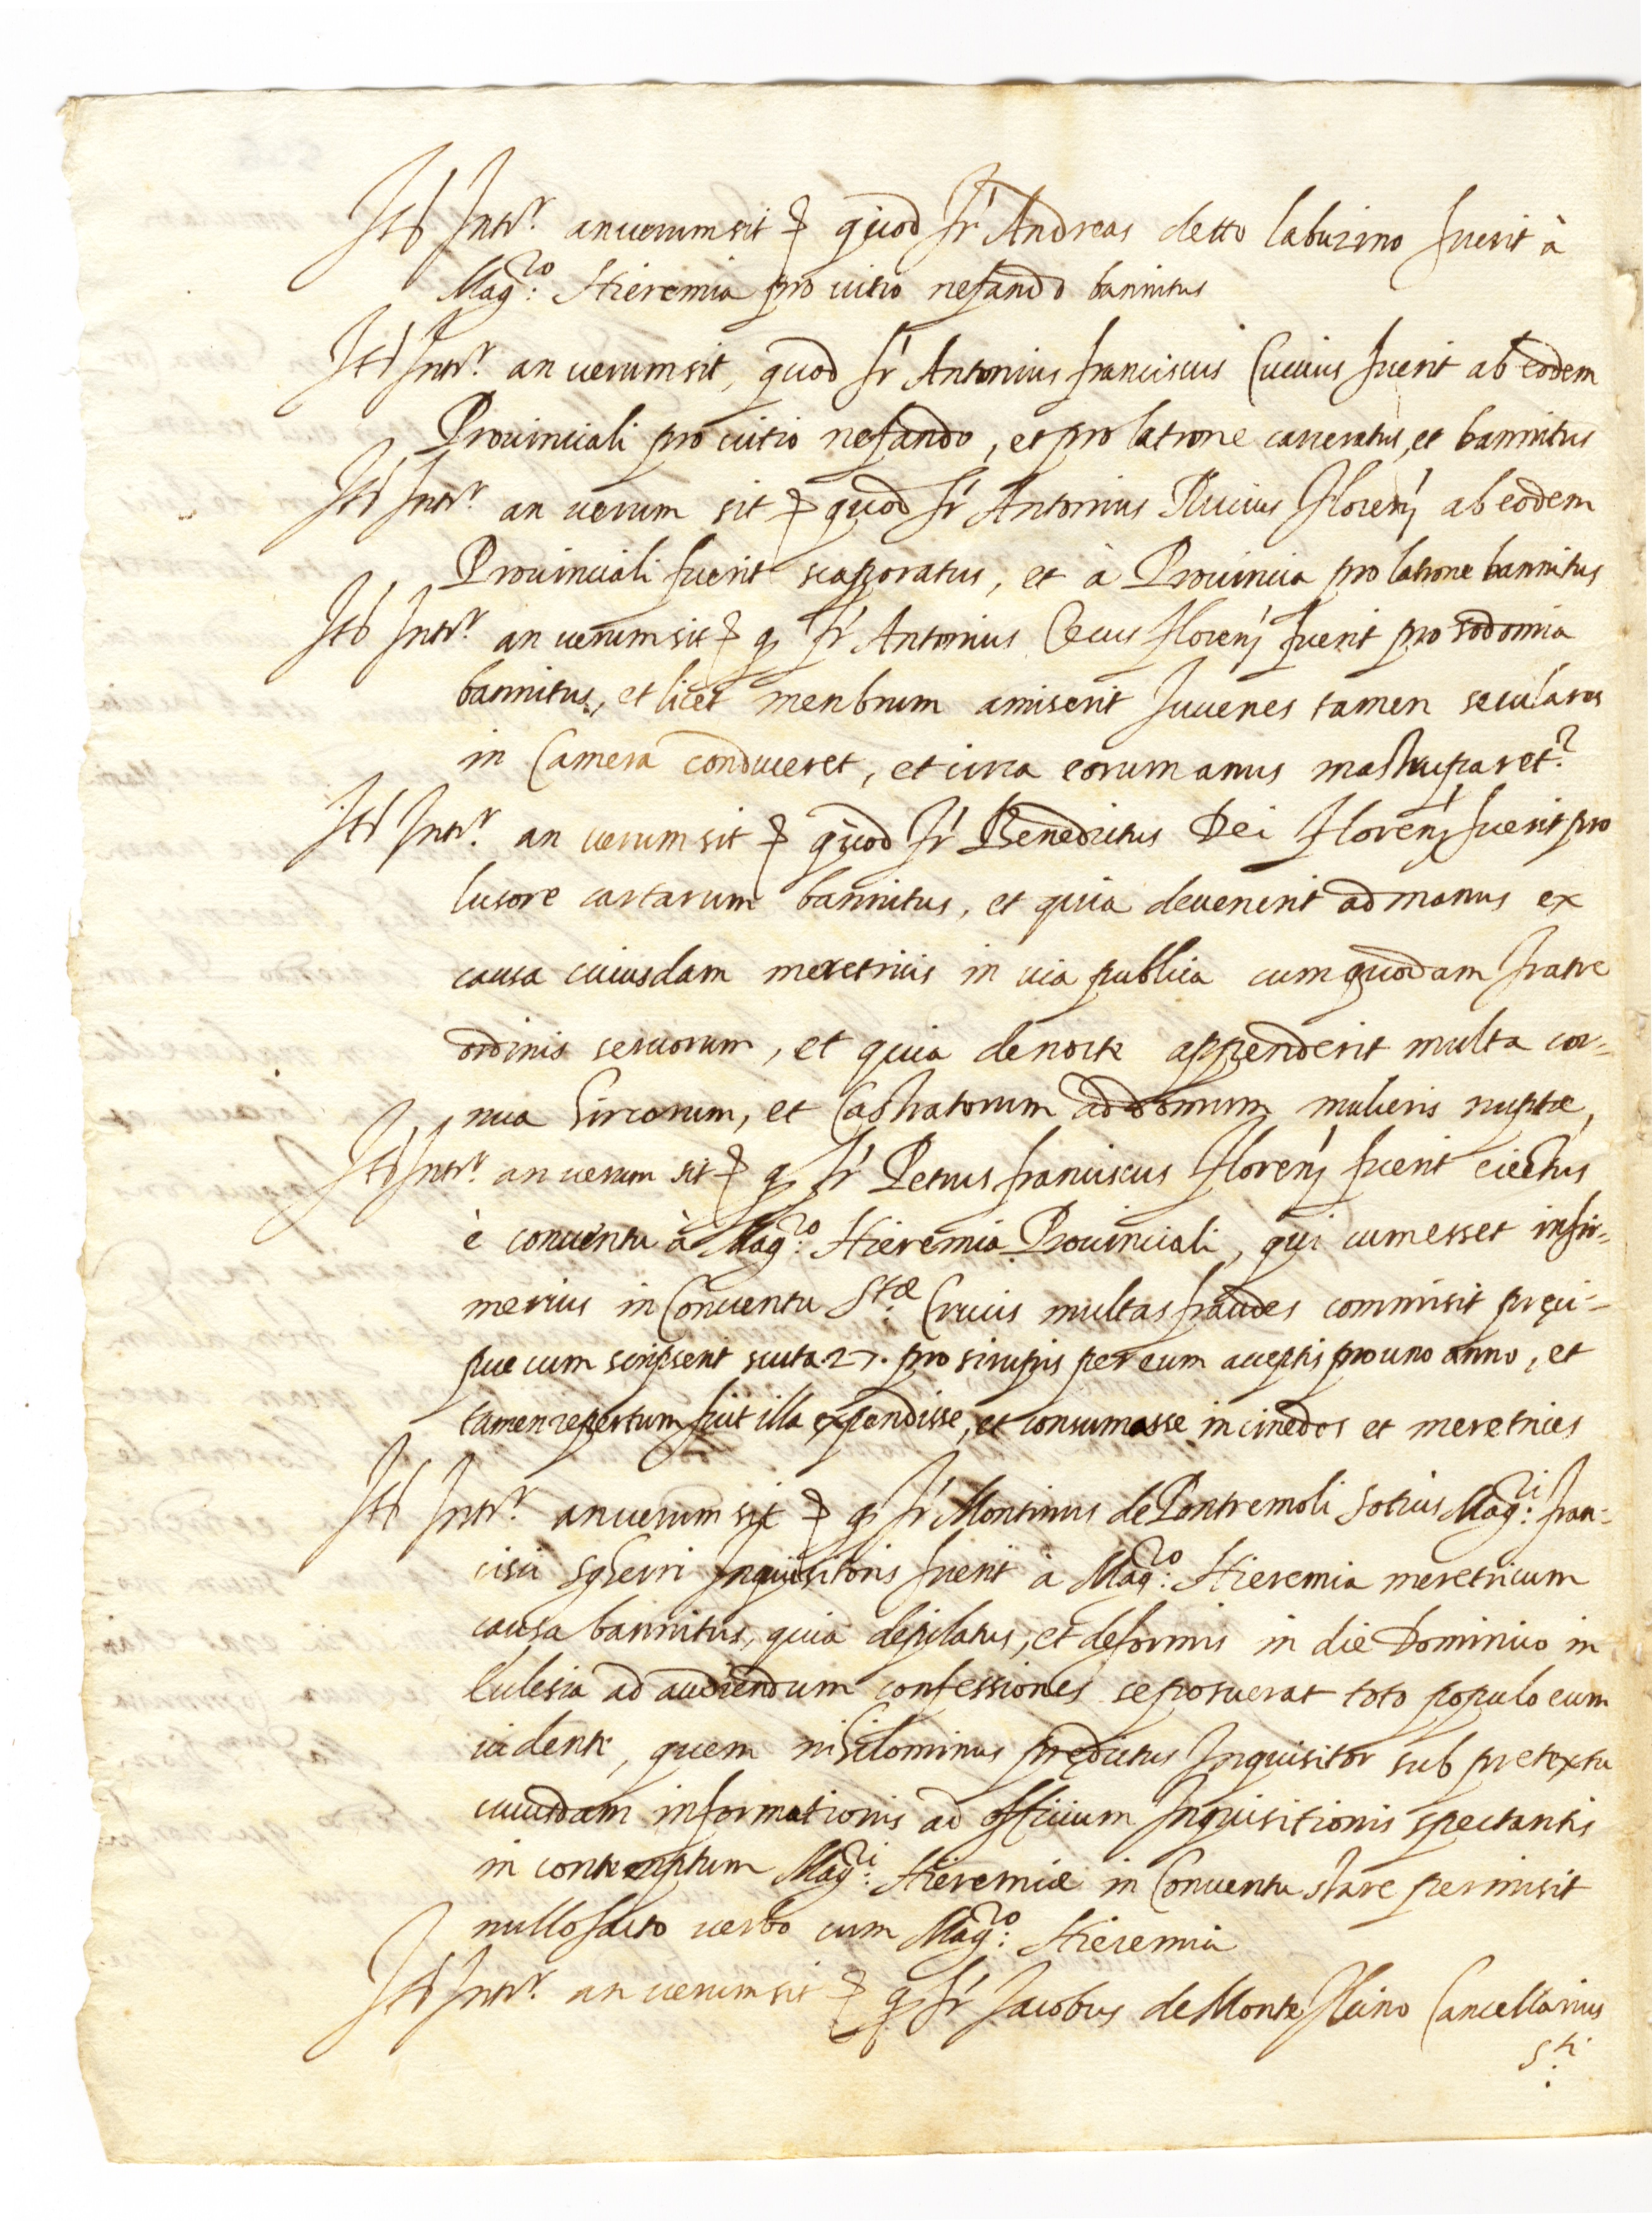 Itē Intr.r an uerum sit quod fr Andreas detto labuzino fuerit à
Mag.ro Hieremia pro uitio nefando bannitus
Itē Intr.r an uerum sit, quod fr Antonius franciscus Cuccius fuerit ab eodem
Prouinciali pro uitio nefando, et pro latrone carceratus, et bannitus
Itē Intr.r an uerum sit quod fr Antonius Floren; ab eodem
Prouinciali fuerit et à Prouincia pro latrone bannitus
Itē Intr.r an uerum sit q fr Antonius Cecus Floren; fuerit pro sodomia
bannitus, et licet menbrum amiserit Juuenes tamen seculares
in Camera conduceret, et circa eorum anus mastruparet?
Itē Intr.r an uerum sit quod fr Benedictus Dei Floren; fuerit pro
lusore cartarum bannitus, et quia deuenerit ad manus ex
causa cuiusdam meretricis in uia publica cum quodam fratre
ordinis seruorum, et quia de nocte appenderit multa cor=
nua hircorum, et Castratorum ad domum mulieris nuptæ,
Itē Intr.r an uerum sit q fr Petrus franciscus Floren; fuerit eiectus
è conuentu à Mag.ro Hieremia Prouinciali, qui cum esset infir=
merius in Conuentu S.tæ Crucis multas fraudes commisit preci=
pue cum scripserit scuta 27. pro sirupis per eum acceptis pro uno anno, et
tamen repertum fuit illa expendisse, et consumasse in cinedos et meretrices
Itē Intr.r an uerum sit q fr Montinus de Pontremoli sotius Mag.ri fran=
cisci Inquisitoris fuerit à Mag.ro Hieremia meretricum
causa bannitus, quia depilatus, et deformis in die Dominico in
Ecclesia ad audiendum confessiones se posuerat toto populo eum
uidente, quem nihilominus predictus Inquisitor sub pretextu
cuiusdam informationis ad officium Inquisitionis spectantis
in contemptum Mag.ri Hieremiæ in Conuentu stare permisit
nullo facto uerbo cum Mag.ro Hieremia
Itē Intr.r an uerum sit q fr Jacobus de Monte Ilcino Cancellarius
S.ti